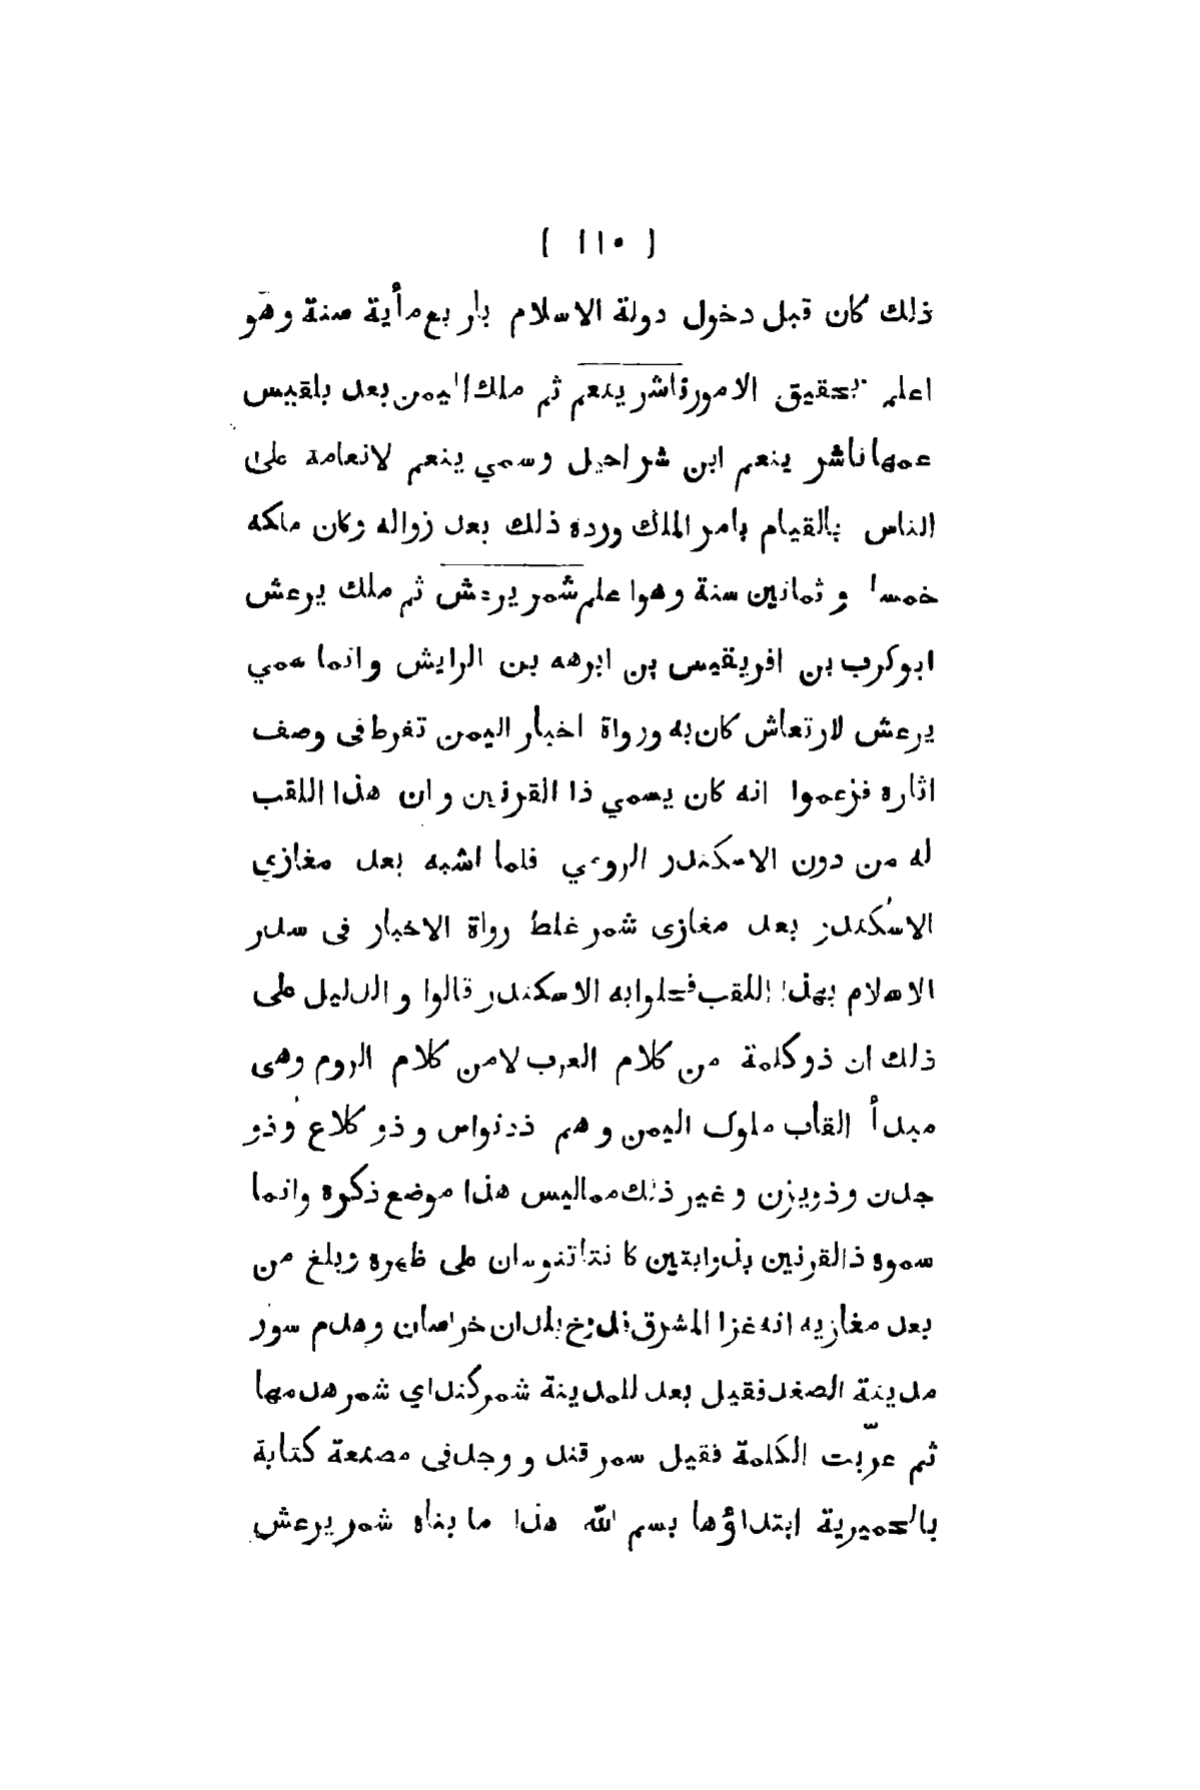 ( ١١٠ )
ذلك كان قبل دخول دولة الاسلام باربع مأية سنة وهو
اعلم بحقيق الامور ناشر ينعم ثم ملك اليمن بعد بلقيس
عمها ناشر ينعم ابن شراحيل وسمي ينعم لانعامه على
الناس بالقيام بامر الملك ورده ذلك بعد زواله وكان ملكه
خمسا و ثمانين سنة وهوا علم شمر يرعش ثم ملك يرعش
ابوكرب بن افريقيس بن ابرهه بن الرايش وانما سمي
يرعش لارتعاش كان به ورواة اخبار اليمن تفرط فى وصف
اثاره فزعموا انه كان يسمي ذا القرنين و ان هذا اللقب
له من دون الاسكندر الرومي فلما اشبه بعد مغازي
الاسكندر بعد مغازى شمر غلط رواة الاخبار فى سدر
الاسلام بهذا اللقب فحلوا به الاسكندر قالوا و الدليل على
ذلك ان ذو كلمة من كلام العرب لا من كلام الروم وهى
مبدأ القاب ملوك اليمن و هم ذدنواس و ذو كلاع وذو
جدن و ذويزن و غير ذلك مماليس هذا موضع ذكره وانما
سموه ذالقرنين بذوابتين كا نتا تنوسان على ظهره وبلغ من
بعد مغازيه انه غزا المشرق فدوخ بلدان خراسان وهدم سور
مدينة الصغد فقيل بعد للمدينة شمركنداي شمر هدمها
ثم عرّبت الكلمة فقيل سمر قند و وجد فى مصنعة كتابة
بالحميرية ابتداؤها بسم الله هذا ما بناه شمر يرعش